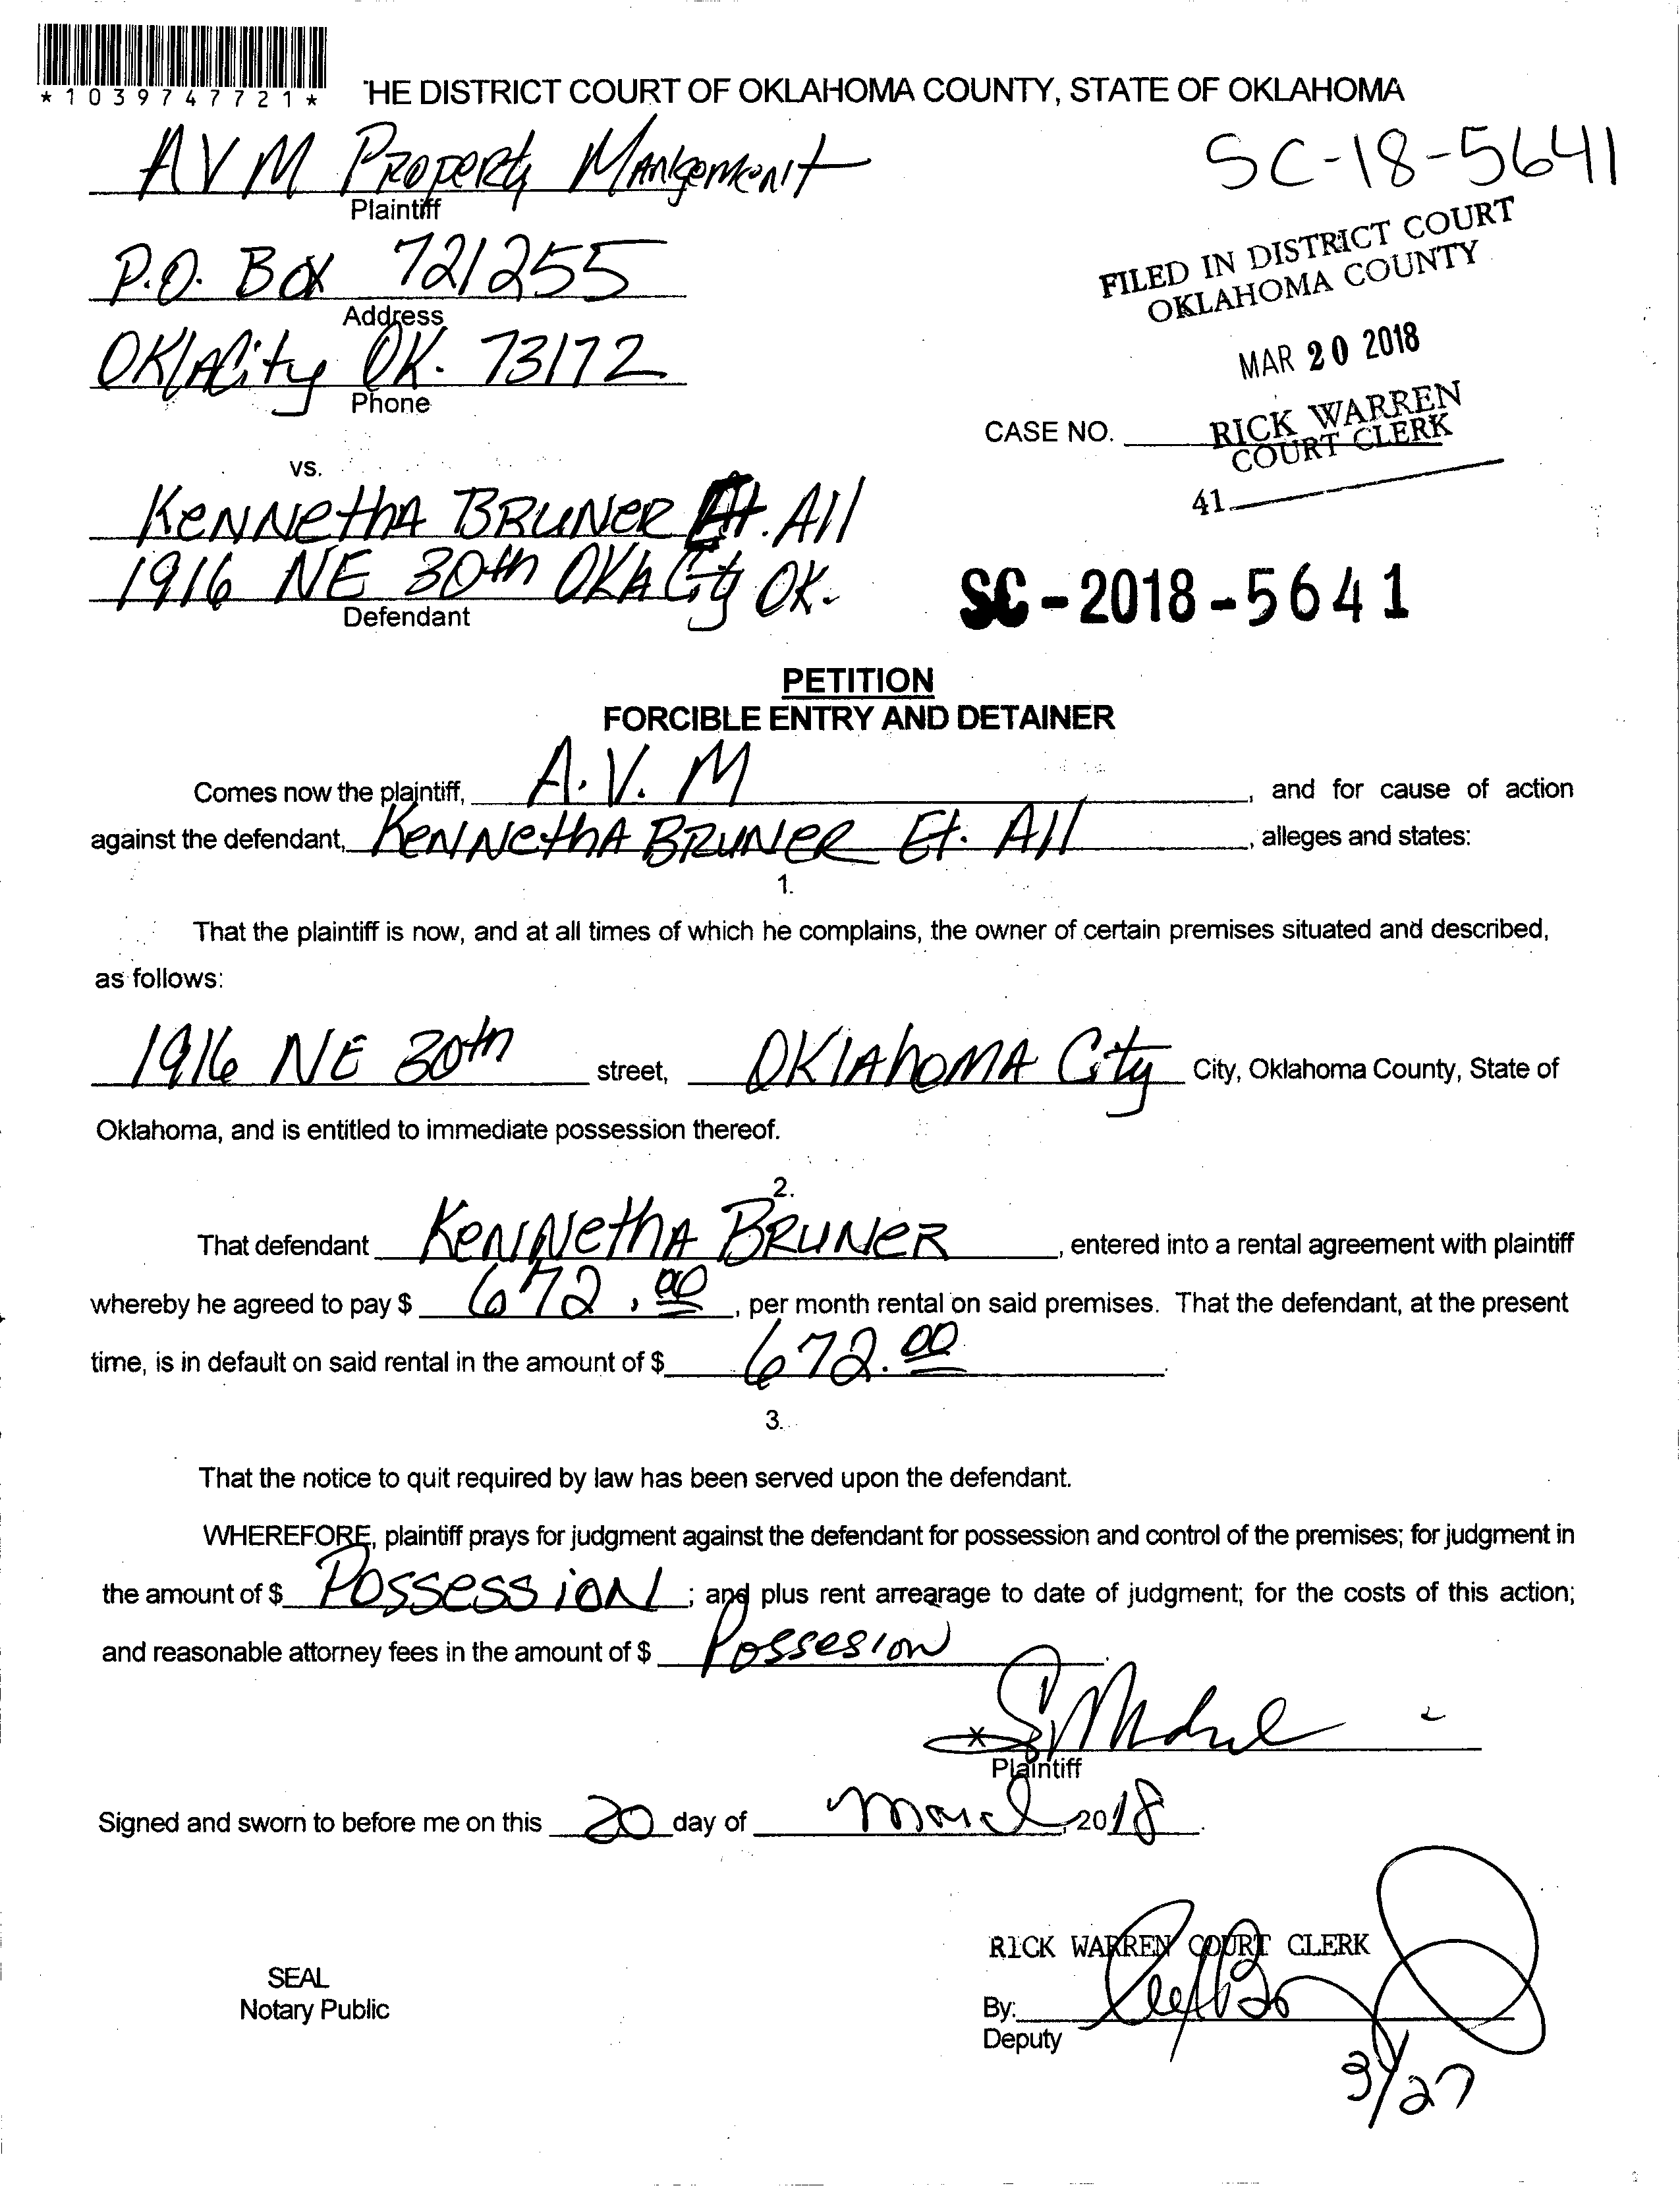 *1039747721*
HE DISTRICT COURT OF OKLAHOMA COUNTY, STATE OF OKLAHOMA
AVM PROPERty MANgemeNt
SC-18-5641
Plaintiff
P.O. Box 721255
FILED IN DISTRICT COURT
OKLAHOMA COUNTY
Address
OKlACity OK. 73172
MAR 20 2018
Phone
CASE NO.
RICK WARREN
COURT CLERK
vs.
41
KeNNethA BRUNeR Et. All
1916 NE 30th OKlA City OK.
SC-2018-5641
Defendant
PETITION
FORCIBLE ENTRY AND DETAINER
Comes now the plaintiff, A.V.M, and for cause of action
against the defendant, KeNNethA BRUNeR Et. All, alleges and states:
1.
That the plaintiff is now, and at all times of which he complains, the owner of certain premises situated and described,
as follows:
1916 NE 30th street, OKlAhomA City City, Oklahoma County, State of
Oklahoma, and is entitled to immediate possession thereof.
2.
That defendant KeNNethA BRUNeR, entered into a rental agreement with plaintiff
whereby he agreed to pay $ 672.00, per month rental on said premises. That the defendant, at the present
time, is in default on said rental in the amount of $ 672.00.
3.
That the notice to quit required by law has been served upon the defendant.
WHEREFORE, plaintiff prays for judgment against the defendant for possession and control of the premises; for judgment in
the amount of $ Possession; and plus rent arrearage to date of judgment; for the costs of this action;
and reasonable attorney fees in the amount of $ Possesion.
Plaintiff
Signed and sworn to before me on this 20 day of March, 2018.
RICK WARREN COURT CLERK
SEAL
Notary Public
By:
Deputy
3/27